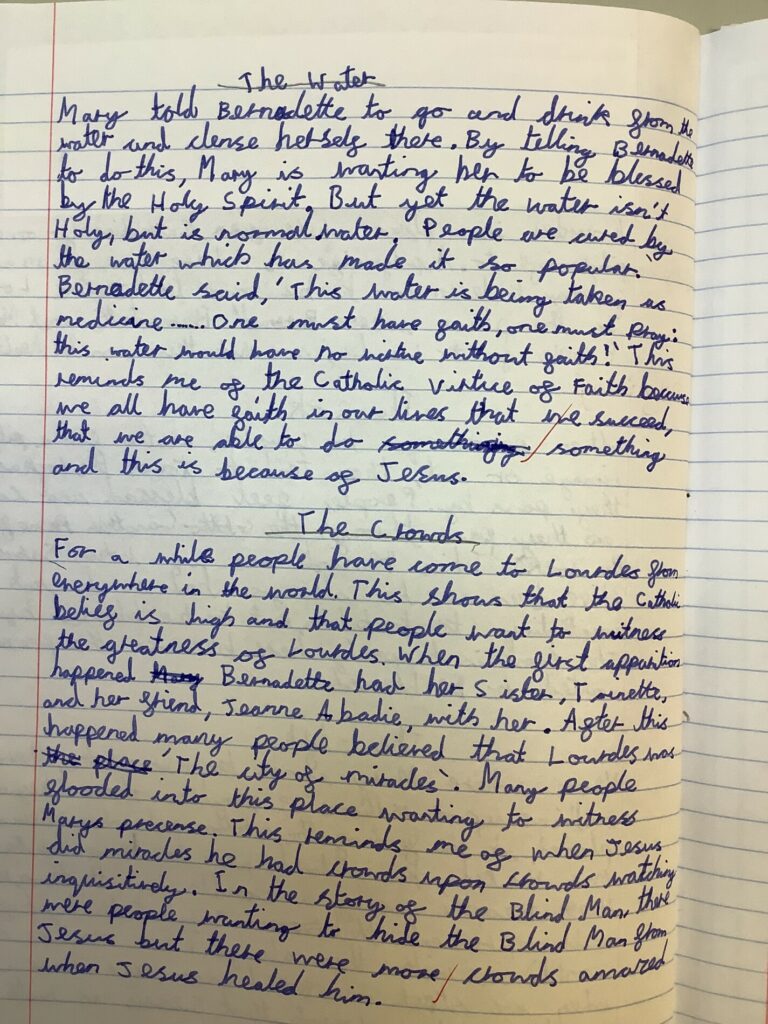 The Water
Mary told Bernadette to go and drink from the
water and clense herself there. By telling Bernadette
to do this, Mary is wanting her to be blessed
by the Holy Spirit. But yet the water isn't
Holy, but is normal water. People are cured by
the water which has made it so popular.
Bernadette said, 'This water is being taken as
medicine...... One must have faith, one must pray:
this water would have no virtue without faith!' This
reminds me of the Catholic Virtice of Faith because
we all have faith in our lives that we succeed,
that we are able to do something something
and this is because of Jesus.
The Crowds
For a while people have come to Lourdes from
everywhere in the world. This shows that the Catholic
belief is high and that people want to witness
the greatness of Lourdes. When the first apparition
happened Mary Bernadette had her Sister, Toinette,
and her friend, Jeanne Abadie, with her. After this
happened many people believed that Lourdes was
the place 'The city of miracles'. Many people
flooded into this place wanting to witness
Marys precense. This reminds me of when Jesus
did miracles he had crowds upon crowds watching
inquisitively. In the story of the Blind Man, there
were people wanting to hide the Blind Man from
Jesus but there were more crowds amazed
when Jesus healed him.